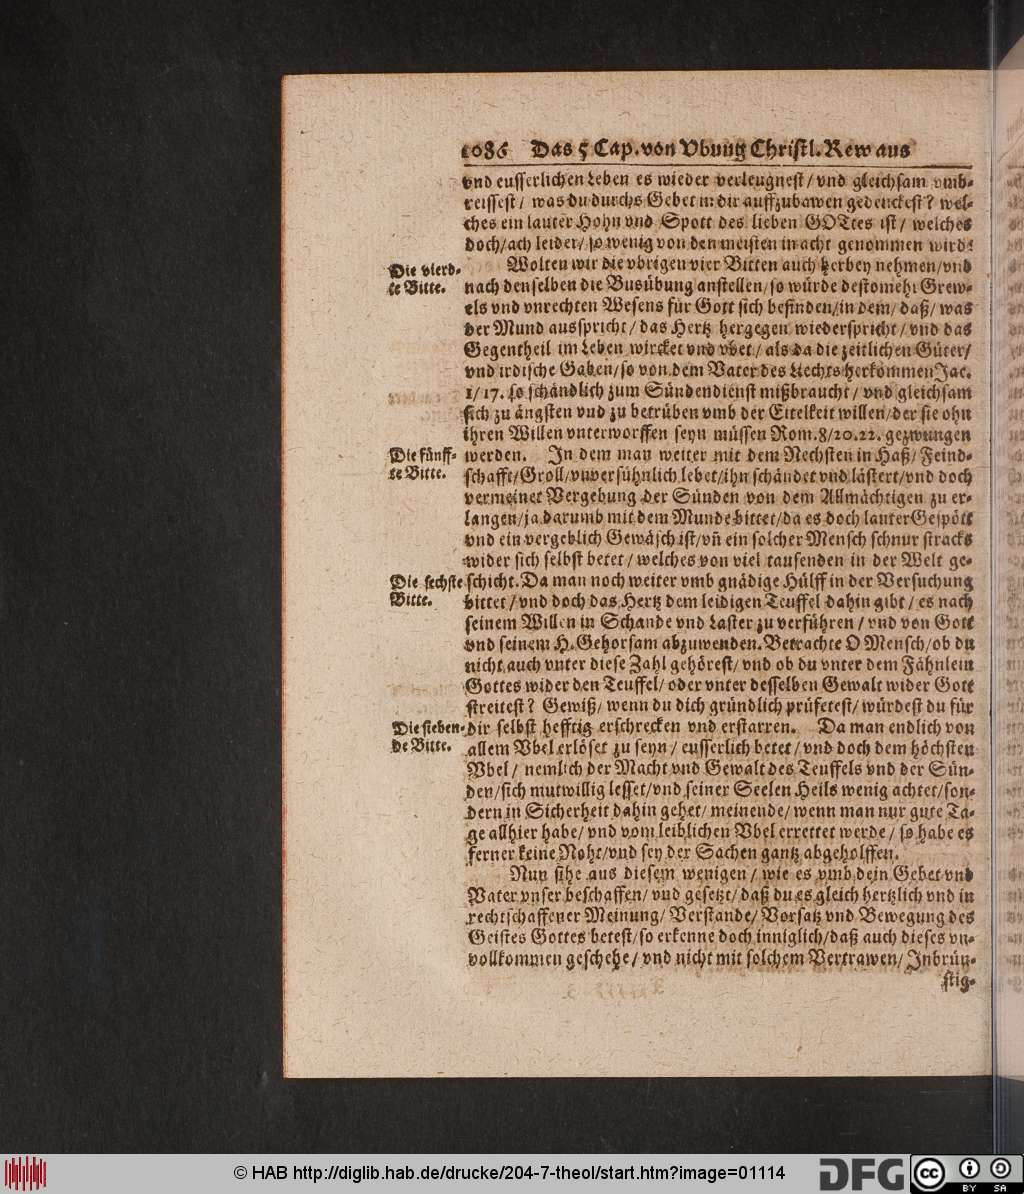 1086 Das 5 Cap. von Vbung Christl. Rew aus
vnd eusserlichen Leben es wieder verleugnest/ vnd gleichsam vmb-
reissest/ was du durchs Gebet in dir auffzubawen gedenckest? wel-
ches ein lauter Hohn vnd Spott des lieben GOTtes ist/ welches
doch/ach leider/ so wenig von den meisten in acht genommen wird!
Die vierd-
te Bitte.
Wolten wir die vbrigen vier Bitten auch herbey nehmen/vnd
nach denselben die Busübung anstellen/ so würde destomehr Grew-
els vnd vnrechten Wesens für Gott sich befinden/in dem/ daß/ was
der Mund ausspricht/ das Hertz hergegen wiederspricht/ vnd das
Gegentheil im Leben wircket vnd vbet/ als da die zeitlichen Güter/
vnd irdische Gaben/ so von dem Vater des Liechts herkommen Jac.
1/17. so schändlich zum Sündendienst mißbraucht/ vnd gleichsam
sich zu ängsten vnd zu betrüben vmb der Eitelkeit willen/der sie ohn
ihren Willen vnterworffen seyn müssen Rom. 8/20.22. gezwungen
Die fünff-
te Bitte.
werden. In dem man weiter mit dem Nechsten in Haß/ Feind-
schafft/Groll/vnversühnlich lebet/ihn schändet vnd lästert/vnd doch
vermeinet Vergebung der Sünden von dem Allmächtigen zu er-
langen/ja darumb mit dem Munde bittet/da es doch lauter Gespött
vnd ein vergeblich Gewäsch ist/vñ ein solcher Mensch schnur stracks
wider sich selbst betet/ welches von viel tausenden in der Welt ge-
Die sechste
Bitte.
schicht. Da man noch weiter vmb gnädige Hülff in der Versuchung
bittet/ vnd doch das Hertz dem leidigen Teuffel dahin gibt/ es nach
seinem Willen in Schande vnd Laster zu verführen/ vnd von Gott
vnd seinem H. Gehorsam abzuwenden. Betrachte O Mensch/ob du
nicht auch vnter diese Zahl gehörest/ vnd ob du vnter dem Fähnlein
Gottes wider den Teuffel/ oder vnter desselben Gewalt wider Gott
streitest? Gewiß/ wenn du dich gründlich prüfetest/ würdest du für
Die sieben-
de Bitte.
dir selbst hefftig erschrecken vnd erstarren. Da man endlich von
allem Vbel erlöset zu seyn/ eusserlich betet/ vnd doch dem höchsten
Vbel/ nemlich der Macht vnd Gewalt des Teuffels vnd der Sün-
den/sich mutwillig lesset/vnd seiner Seelen Heils wenig achtet/son-
dern in Sicherheit dahin gehet/ meinende/ wenn man nur gute Ta-
ge allhier habe/ vnd vom leiblichen Vbel errettet werde/ so habe es
ferner keine Noht/vnd sey der Sachen gantz abgeholffen.
Nun sihe aus diesem wenigen/ wie es vmb dein Gebet vnd
Vater vnser beschaffen/ vnd gesetzt/ daß du es gleich hertzlich vnd in
rechtschaffener Meinung/ Verstande/ Vorsatz vnd Bewegung des
Geistes Gottes betest/so erkenne doch inniglich/daß auch dieses vn-
vollkommen geschehe/ vnd nicht mit solchem Vertrawen/ Inbrün-
stig-
© HAB http://diglib.hab.de/drucke/204-7-theol/start.htm?image=01114
DFG
cc BY SA